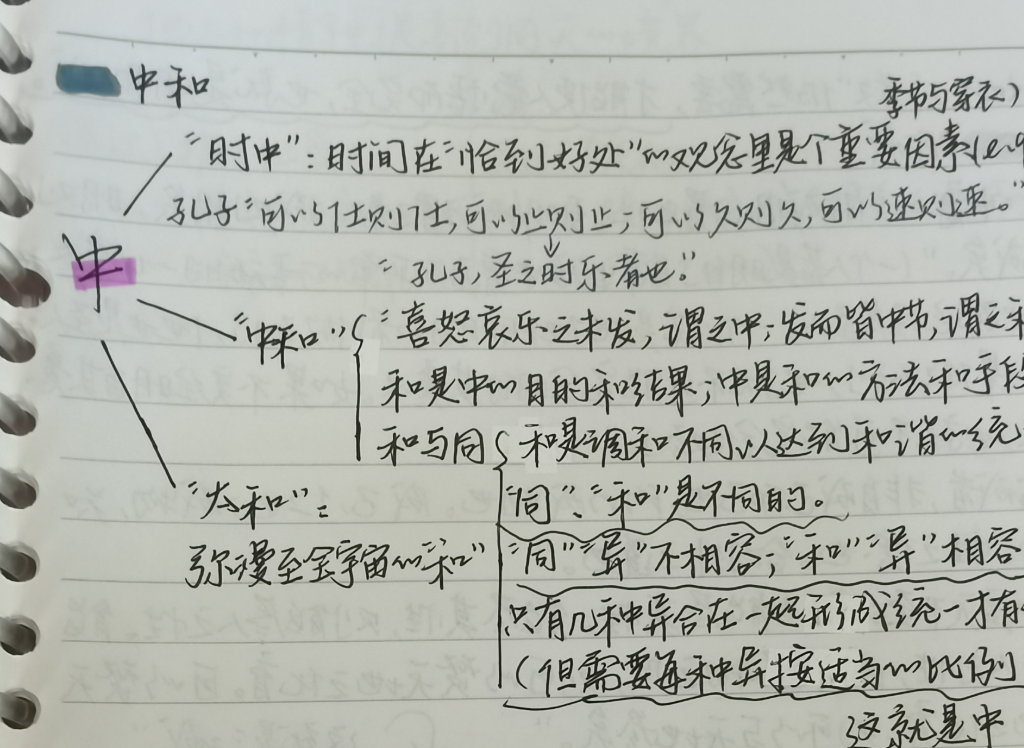 中和
季节与穿衣）
“时中”：时间在“恰到好处”的观念里是个重要因素(e.g
孔子“可以仕则仕，可以止则止；可以久则久，可以速则速。”
“孔子，圣之时乐者也。”
中
“中和”
“喜怒哀乐之未发，谓之中；发而皆中节，谓之和
和是中的目的和结果；中是和的方法和手段
和与同
和是调和不同以达到和谐的统
“同”、“和”是不同的。
“太和”：
弥漫至全宇宙的“和”
“同”“异”不相容；“和”“异”相容
只有几种异合在一起形成统一才有
（但需要每种异按适当的比例
这就是中